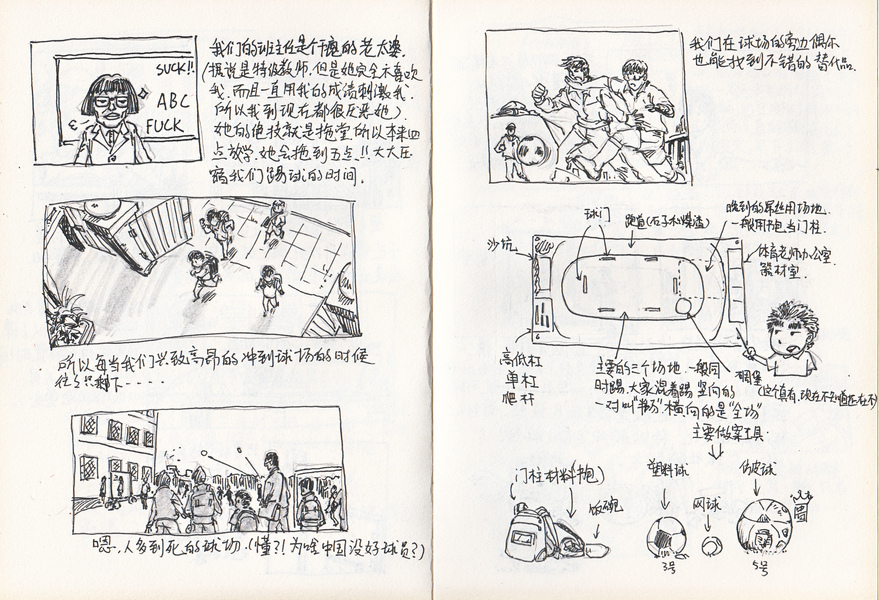 SUCK!!
ABC
FUCK
我们的班主任是个干瘪的老太婆.
(据说是特级教师.但是她完全不喜欢
我.而且一直用我的成绩刺激我.
所以我到现在都很反恶她)
她的绝技就是拖堂所以本来四
点放学.她会拖到五点!!大大压
缩我们踢球的时间.
所以每当我们兴致高昂的冲到球场的时候
往往只剩下----
嗯.人多到死的球场.(懂?!为啥中国没好球员?)
我们在球场的旁边偶尔
也能找到不错的替代品.
沙坑
球门
跑道(石子和煤渣)
晚到的屌丝用场地.
一般用书包当门柱.
体育老师办公室.
器材室.
高低杠
单杠
爬杆
主要的三个场地.一般同
时踢.大家混着踢 竖向的
一对叫"半场".横向的是"全场"
碉堡
(这个真有.现在不知道还在不)
主要做案工具:
(门柱材料书包)
饭碗
塑料球
网球
仿皮球
3号
5号